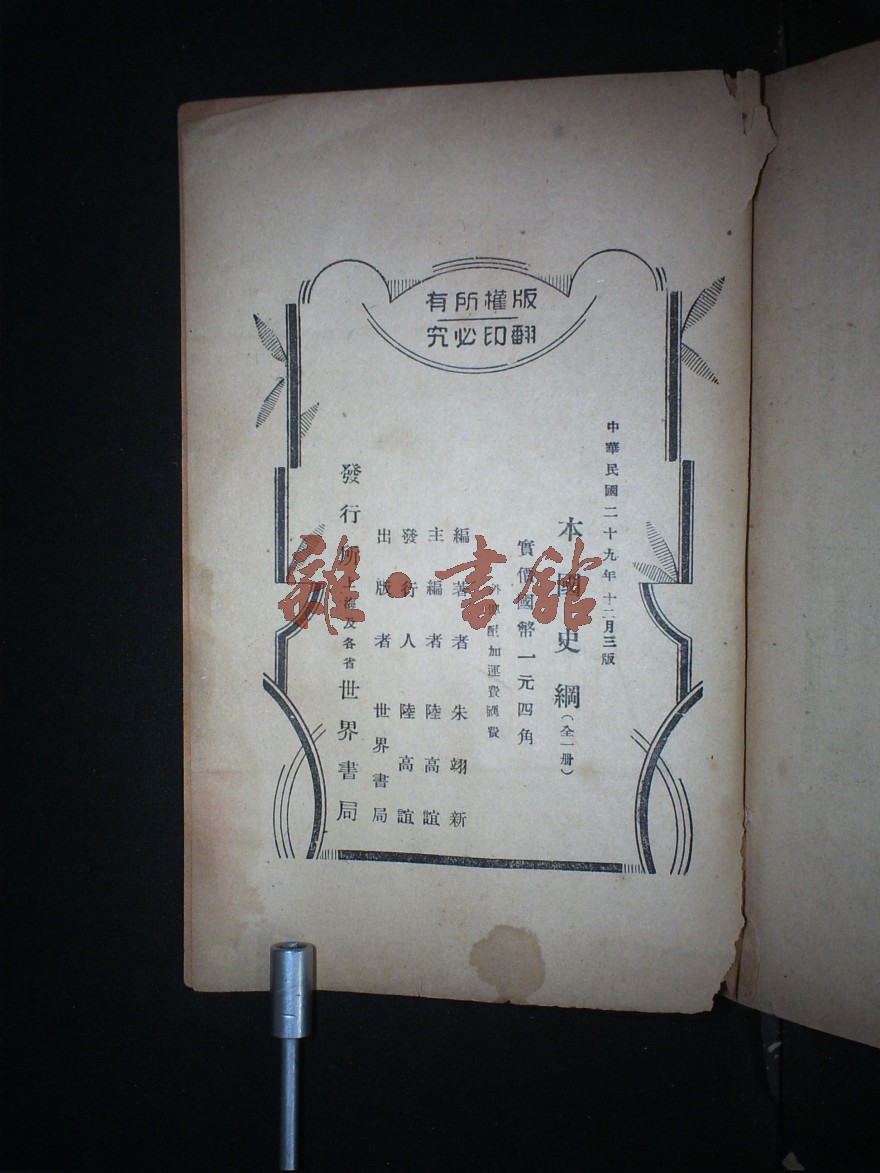 版權所有
翻印必究
中華民國二十九年十二月三版
本國史綱(全一册)
實價國幣一元四角
外埠酌加運費匯費
編著者 朱翊新
主編者 陸高誼
發行人 陸高誼
出版者 世界書局
發行所 上海及各省 世界書局
雜·書館